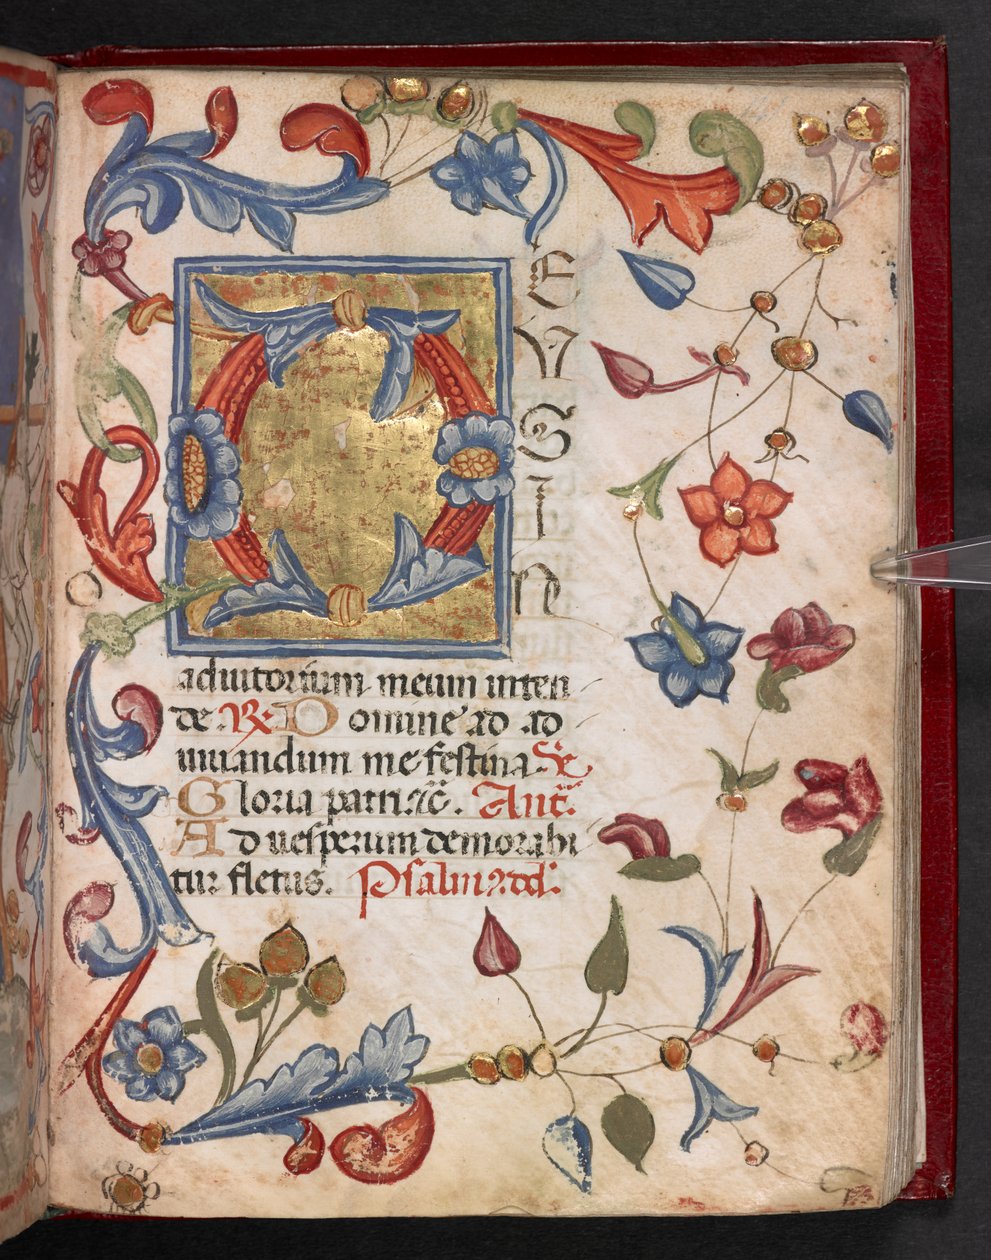 D
E
V
S
I
N
adiutorium meum inten
de. R. Domine ad ad
iuuandum me festina. Se.
Gloria patri. &c. Ant.
Ad uesperum demorabi
tur fletus. Psalm